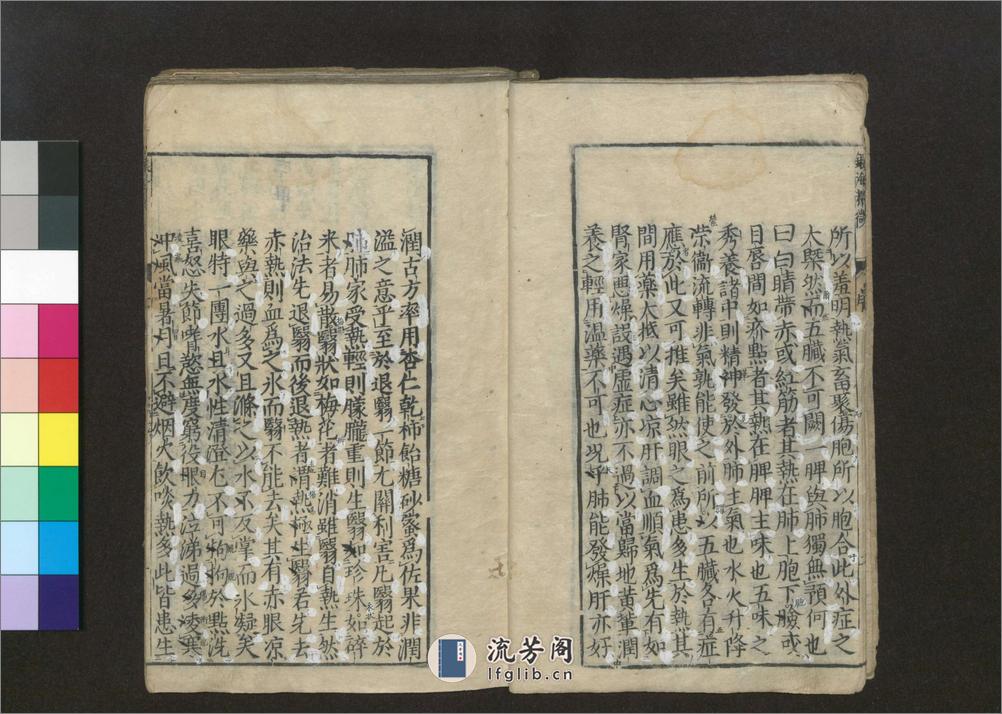 銀海精微
序
所以羞明熱氣畜聚傷胞所以胞合此外症之
大槩然而五臟不可闕一脾與肺獨無預何也
曰白睛帶赤或紅筋者其熱在肺上胞下瞼或
目唇間如疥點者其熱在脾脾主味也五味之
秀養諸中則精神發於外肺主氣也水火升降
榮衞流轉非氣孰能使之前所以五臟各有症
應於此又可推矣雖然眼之為患多生於熱其
間用藥大抵以清心凉肝調血順氣為先有如
腎家惡燥設遇虛症亦不過以當歸地黃輩潤
養之輕用温藥不可也况肺能發燥肝亦好
潤古方率用杏仁乾柿飴糖砂蜜為佐果非潤
溢之意乎至於退翳一節尤關利害凡翳起於
肺肺家受熱輕則朦朧重則生翳如珍珠如碎
米者易散翳狀如梅花者難消雖翳自熱生然
治法先退翳而後退熱者謂熱極生翳若先去
赤熱則血為之氷而翳不能去矣其有赤眼凉
藥與之過多又且滌之以水不反掌而氷凝矣
眼特一團水且水性清澄尤不可拘拘於點洗
喜怒失節嗜慾無度窮役眼力泣涕過多凌寒
冲風當暑月且不避烟火飲啖熱多此皆患生
流芳阁
lfglib.cn